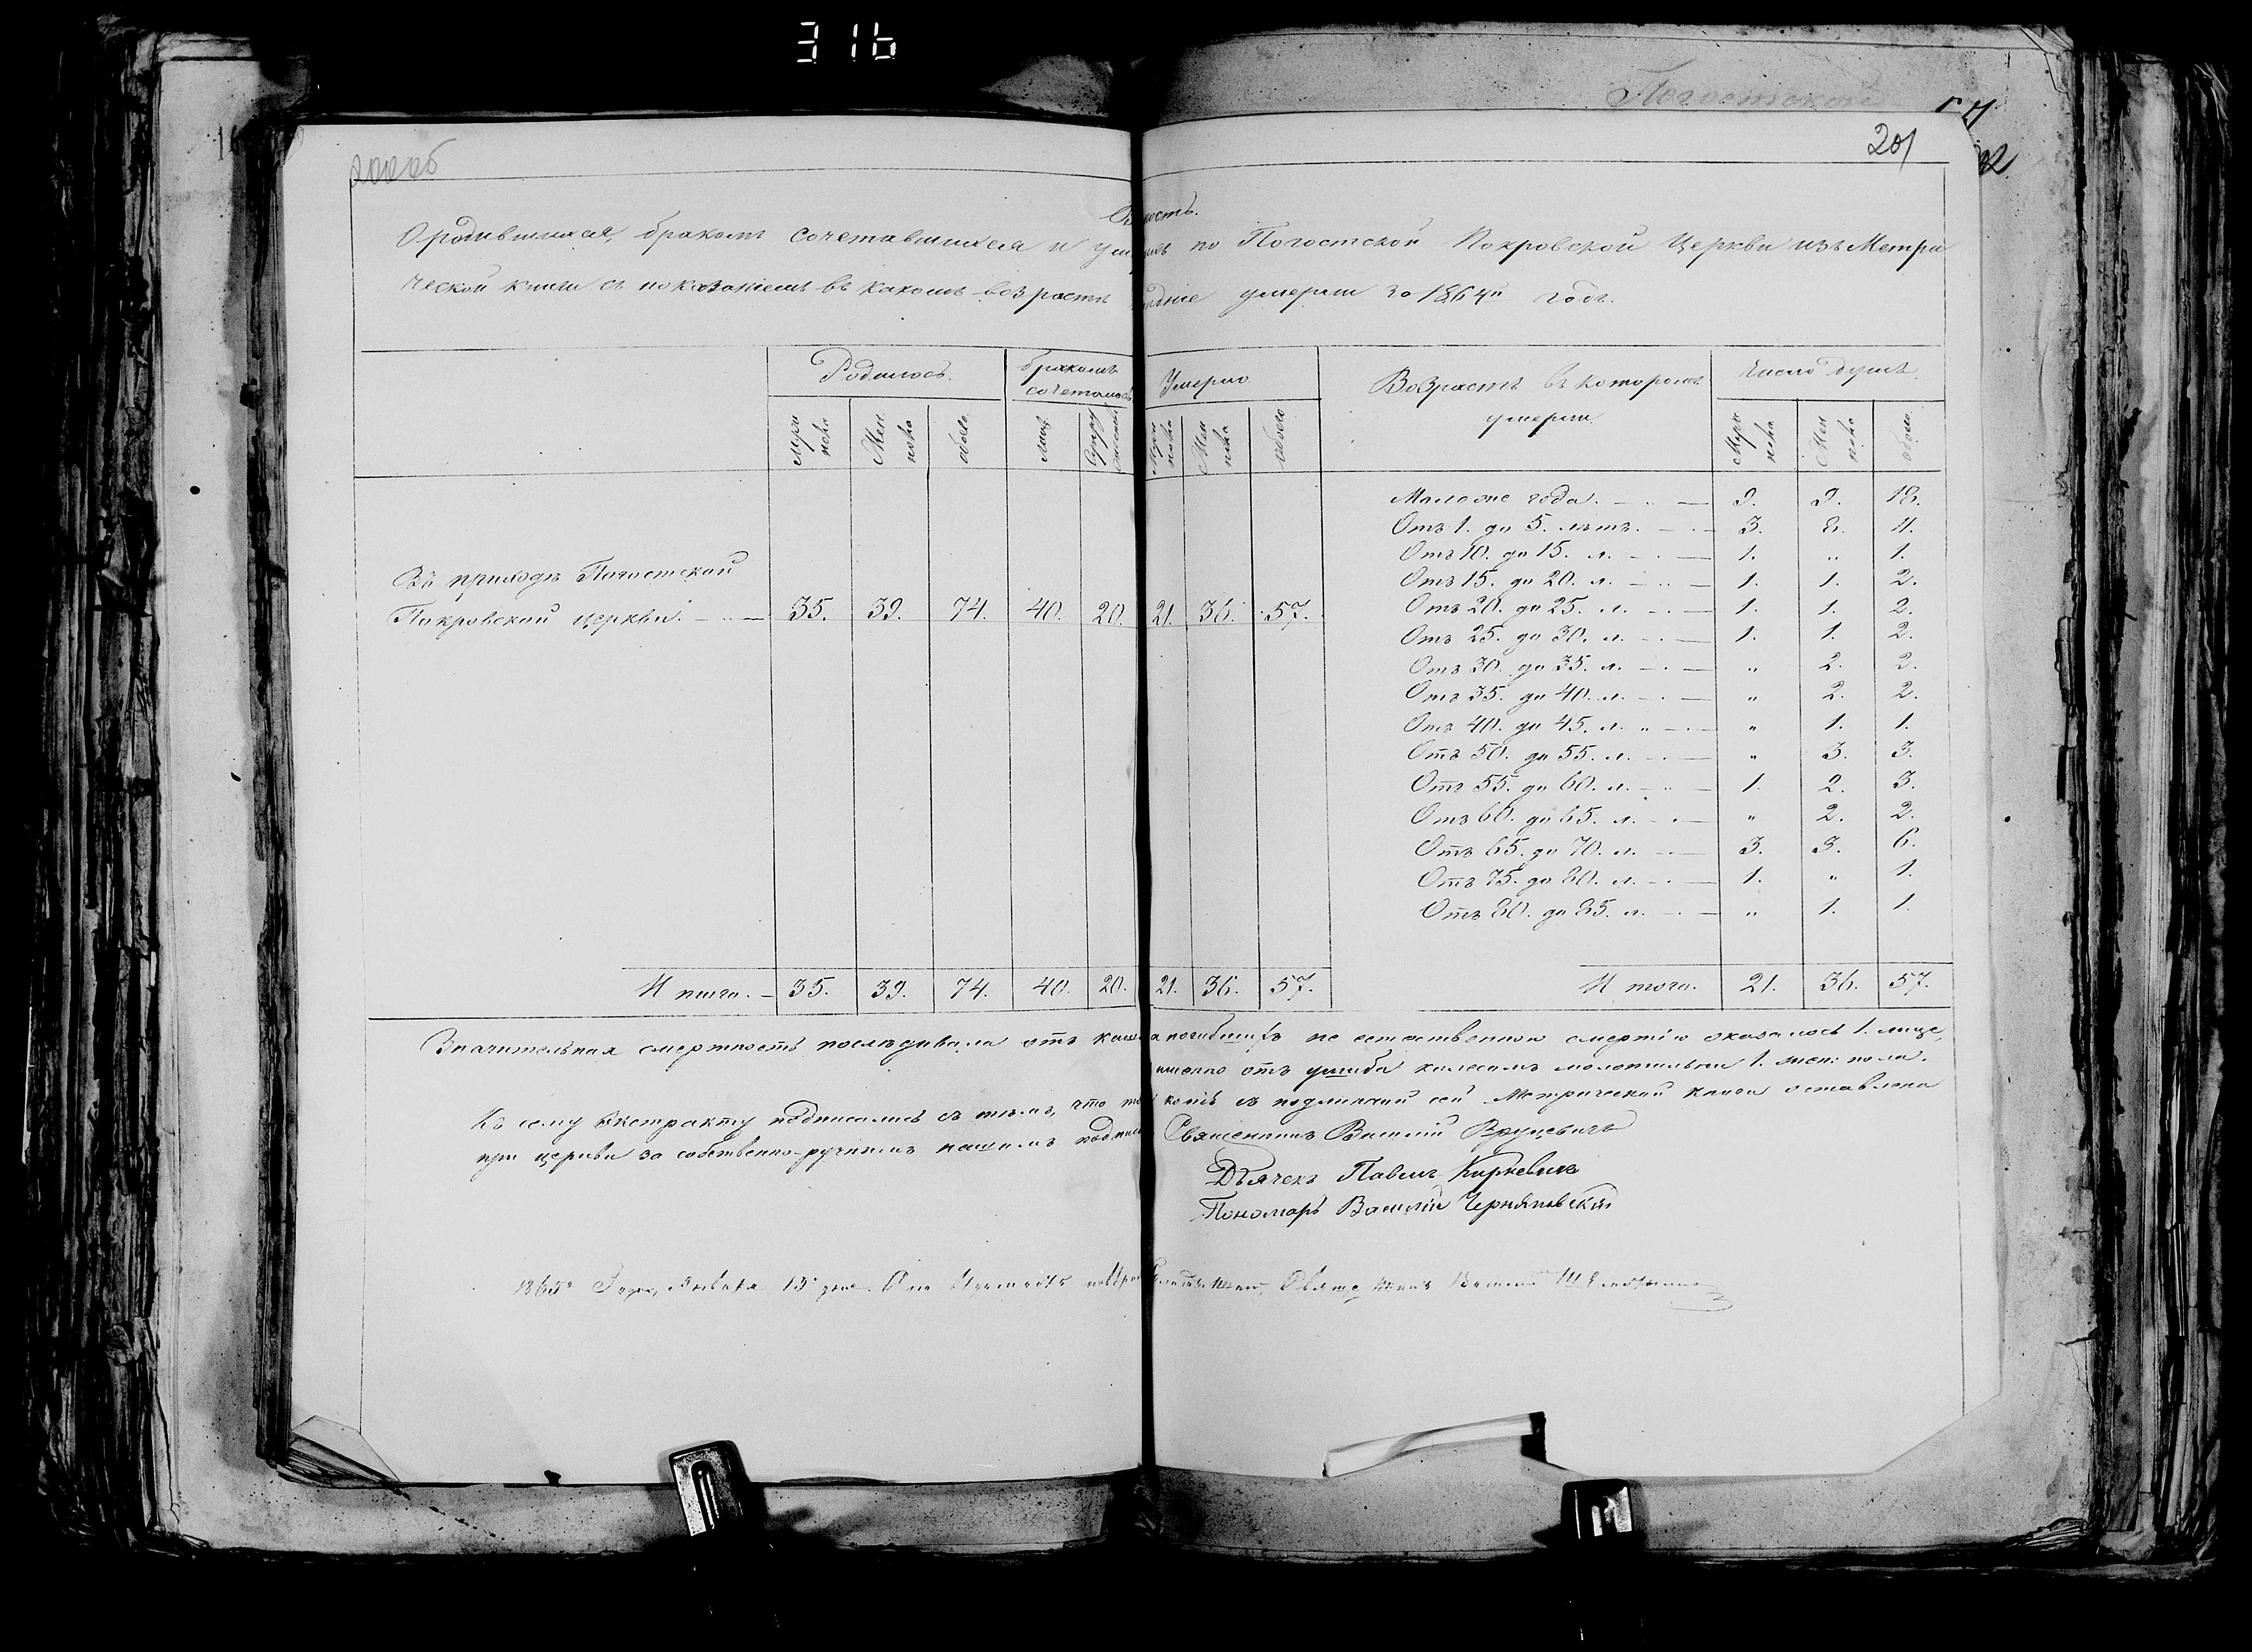 316
Погостской
201
200об
Вѣдомость.
О родившихся, бракомъ сочетавшихся и умершихъ по Погостской Покровской Церкви изъ Метри
ческой книги съ показаніемъ въ какомъ возрастѣ умерли за 1864й годъ.
Родилось. бракомъ сочеталось Умерло Возрастъ въ которомъ умерли Число душъ
Муж пола Жен пола обоего лицъ Супружествъ Муж пола Жен пола обоего Муж пола Жен пола обоего
Моложе года. 9. 9. 18.
Отъ 1. до 5. лѣтъ. 3. 8. 11.
Отъ 10. до 15. л. 1. „ 1.
Отъ 15. до 20. л. 1. 1. 2.
Отъ 20. до 25. л. 1. 1. 2.
Отъ 25. до 30. л. 1. 1. 2.
Отъ 30. до 35. л. „ 2. 2.
Отъ 35. до 40. л. „ 2. 2.
Отъ 40. до 45. л. „ 1. 1.
Отъ 50. до 55. л. „ 3. 3.
Отъ 55. до 60. л. 1. 2. 3.
Отъ 60. до 65. л. „ 2. 2.
Отъ 65. до 70. л. 3. 3. 6.
Отъ 75. до 80. л. 1. „ 1.
Отъ 80. до 85. л. „ 1. 1.
Въ приходѣ Погостской
Покровской церкви. 35. 39. 74. 40. 20. 21. 36. 57.
Итого. 35. 39. 74. 40. 20. 21. 36. 57. Итого. 21. 36. 57.
Значительная смертность послѣдовала отъ кашля погибшихъ не естественною смертію оказалось 1. лице,
именно отъ ушиба колесомъ молотильни 1. жен: пола.
Къ сему экстракту подписались съ тѣмъ, что копія съ подлинной сей Метрической книги оставлена
при церкви за собственно-ручнымъ нашимъ подписомъ Священникъ Василій Вруцевичъ
Дьячекъ Павелъ Киркевичъ
Пономарь Василій Чернявскій
1865го Года, Января 15 дня. Священникъ Василій